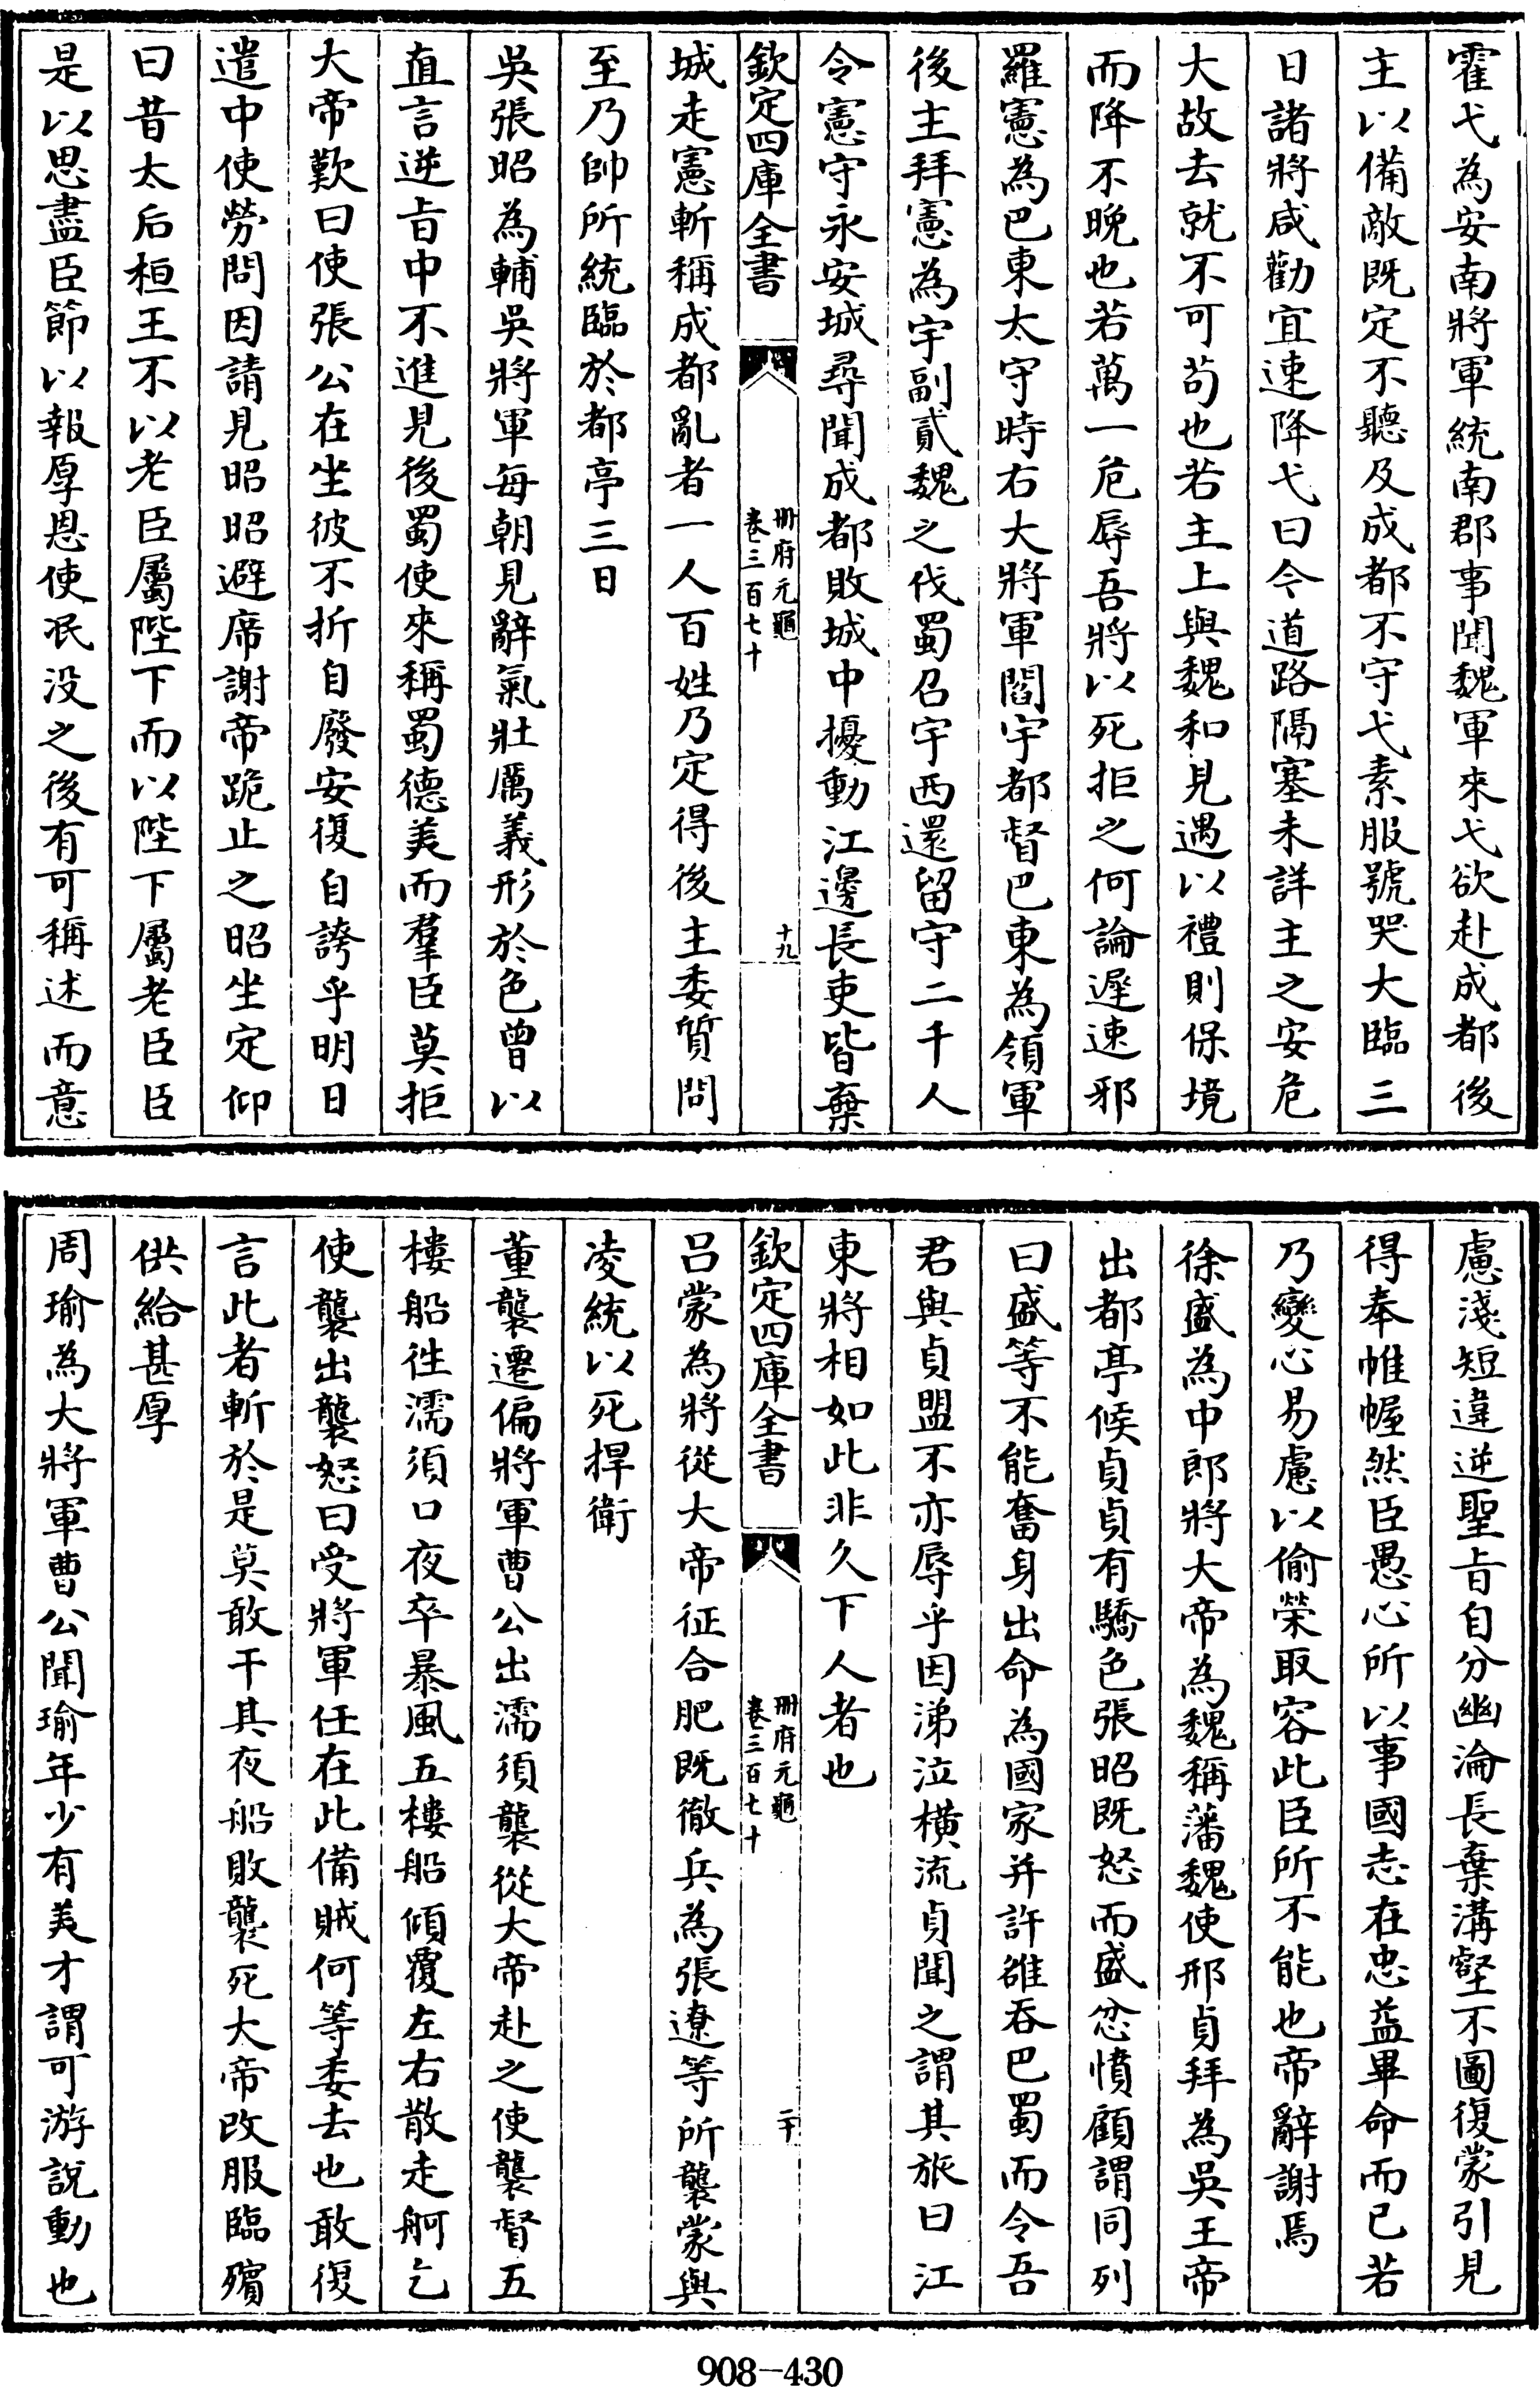 霍弋為安南將軍統南郡事聞魏軍來弋欲赴成都後
主以備敵既定不聽及成都不守弋素服號哭大臨三
日諸將咸勸宜速降弋曰今道路隔塞未詳主之安危
大故去就不可茍也若主上與魏和見遇以禮則保境
而降不晚也若萬一危辱吾將以死拒之何論遲速邪
羅憲為巴東太守時右大將軍閻宇都督巴東為領軍
後主拜憲為宇副貳魏之伐蜀召宇西還留守二千人
令憲守永安城尋聞成都敗城中擾動江邊長吏皆棄
欽定四庫全書
冊府元龜
卷三百七十
十九
城走憲斬稱成都亂者一人百姓乃定得後主委質問
至乃帥所統臨於都亭三日
吳張昭為輔吳將軍每朝見辭氣壯厲義形於色曾以
直言逆旨中不進見後蜀使來稱蜀德美而羣臣莫拒
大帝歎曰使張公在坐彼不折自廢安復自誇乎明日
遣中使勞問因請見昭昭避席謝帝跪止之昭坐定仰
曰昔太后桓王不以老臣屬陛下而以陛下屬老臣臣
是以思盡臣節以報厚恩使泯没之後有可稱述而意
慮淺短違逆聖旨自分幽淪長棄溝壑不圖復蒙引見
得奉帷幄然臣愚心所以事國志在忠益畢命而已若
乃變心易慮以偷榮取容此臣所不能也帝辭謝焉
徐盛為中郎將大帝為魏稱藩魏使邢貞拜為吳王帝
出都亭候貞貞有驕色張昭既怒而盛忿憤顧謂同列
曰盛等不能奮身出命為國家并許雒吞巴蜀而令吾
君與貞盟不亦辱乎因涕泣橫流貞聞之謂其旅曰江
東將相如此非久下人者也
欽定四庫全書
冊府元龜
卷三百七十
二十
呂蒙為將從大帝征合肥既徹兵為張遼等所襲蒙與
凌統以死捍衛
董襲遷偏將軍曹公出濡須襲從大帝赴之使襲督五
樓船往濡須口夜卒暴風五樓船傾覆左右散走舸乞
使襲出襲怒曰受將軍任在此備賊何等委去也敢復
言此者斬於是莫敢干其夜船敗襲死大帝改服臨殯
供給甚厚
周瑜為大將軍曹公聞瑜年少有美才謂可游說動也
908-430